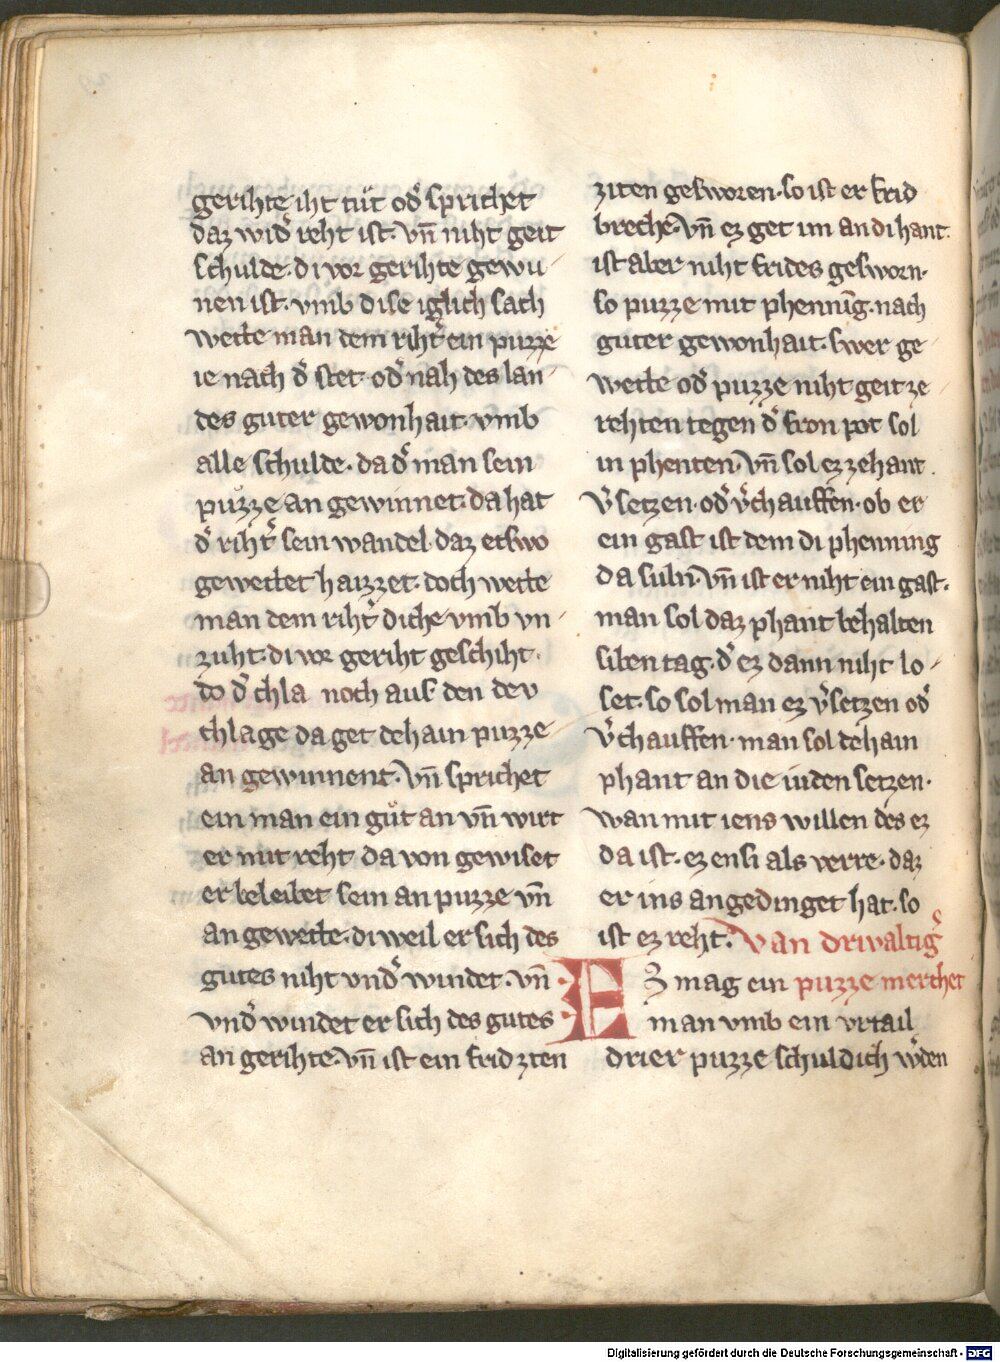 gerihte iht tuͤt od͛ sprichet
daz wid͛ reht ist. vn̄ niht geit
schulde. di vor gerihte gewu-
nen ist. vmb dise iglich sach
wette man dem riht͛ ein puzze
ie nach d͛ stet. od͛ nah des lan-
des guter gewonhait. vmb
alle schulde. da d͛ man sein
puͦzze an gewinnet. da hat
d͛ riht͛ sein wandel. daz etswo
gewettet haizzet. doch wette
man dem riht͛ diche vmb vn-
zuht. di vor geriht geschiht.
do d͛ chla noch auf den dev
chlage da get dehain puzze
an gewinnent. vn̄ sprichet
ein man ein guͦt an vn̄ wirt
er mit reht da von gewiset
er beleibet sein an puzze vn̄
an gewette. di weil er sich des
gutes niht vnd͛ windet. vn̄
vnd͛ windet er sich des gutes
an gerihte. vn̄ ist ein frid zten
ziten gesworen. so ist er frid
breche. vn̄ ez get im an di hant.
ist aber niht frides gesworn.
so puzze mit phenni̅g. nach
guter gewonhait. swer ge-
wette od͛ puzze niht geit ze-
rehten tegen d͛ fron pot sol
in phenten. vn̄ sol ez zehant
v͛setzen. od͛ v͛chauffen. ob er
ein gast ist dem di phenning
da suln. vn̄ ist er niht ein gast.
man sol daz phant behalten
siben tag. d͛ ez dann niht lo-
set. so sol man ez v͛setzen od͛
v͛chauffen. man sol dehain
phant an die iuden setzen.
wan mit iens willen des ez
da ist. ez ensi als verre. daz
er ins angedinget hat. so
ist ez reht. Van drivaltig͛
EZ mag ein puzze merchet
man vmb ein vrtail
drier puzze schuldich w͛den
Digitalisierung gefördert durch die Deutsche Forschungsgemeinschaft - DFG